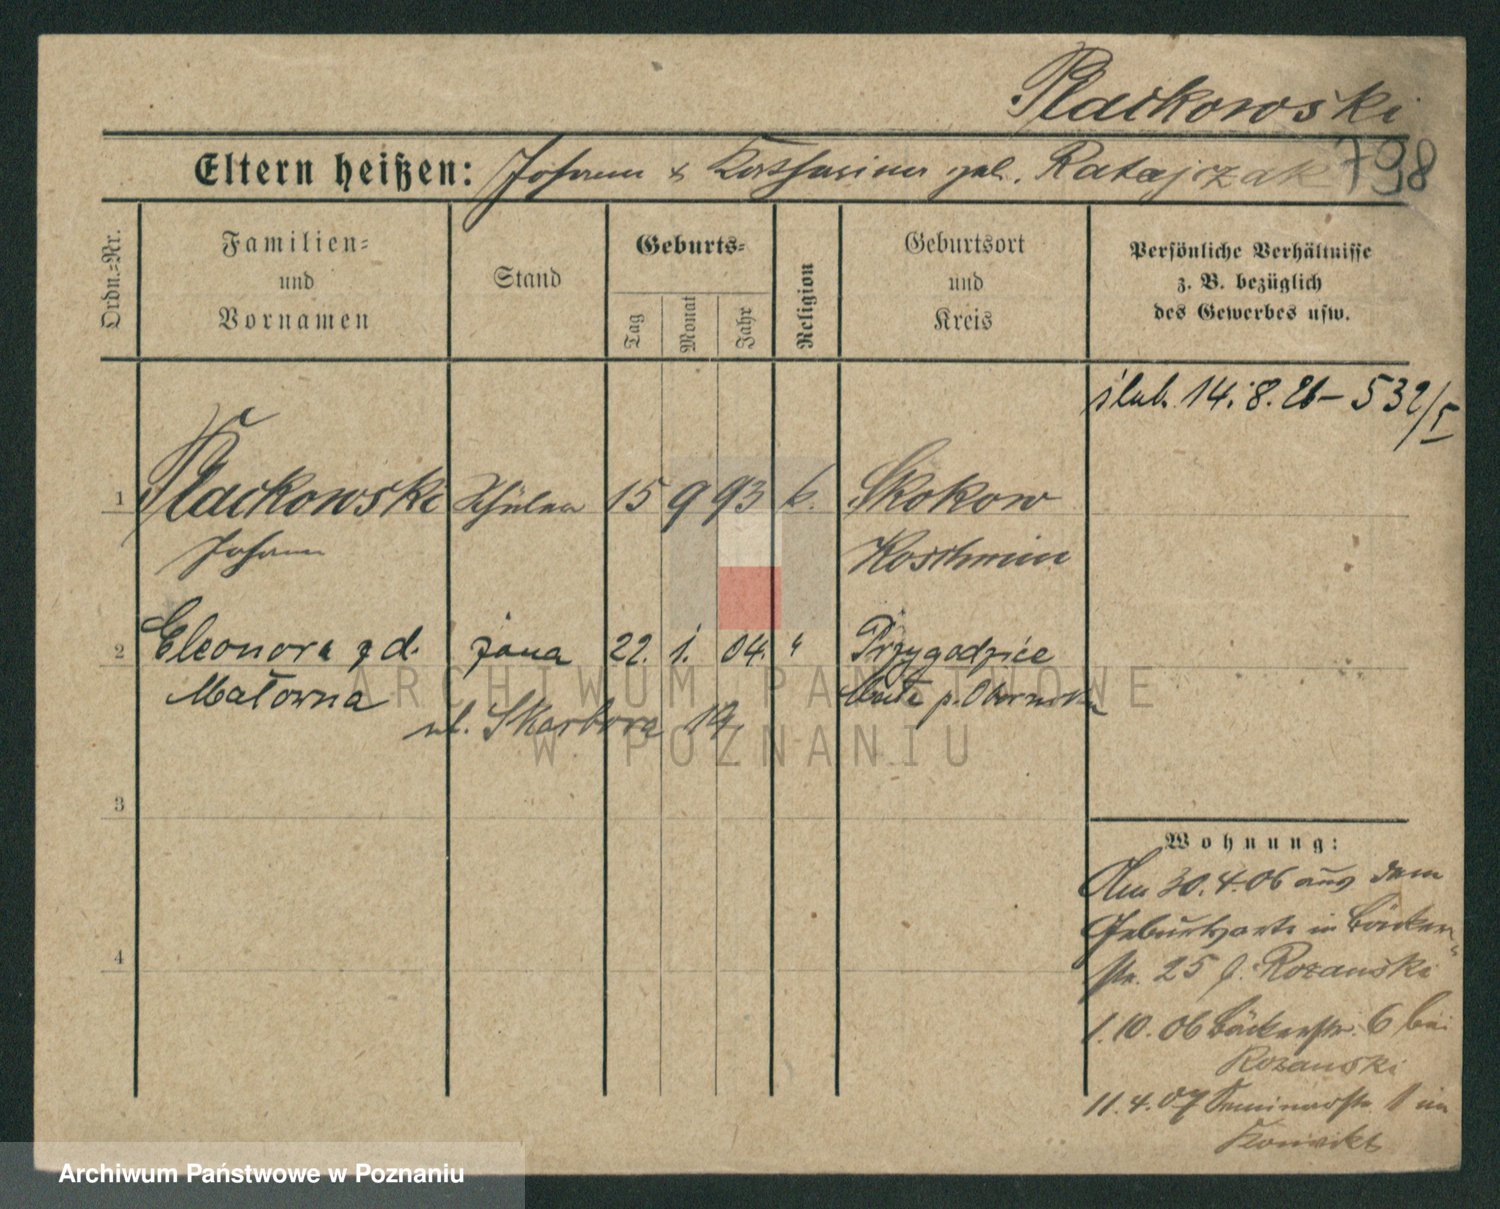 Plackowski
Eltern heißen: Johann & Katharina geb. Ratajczak 798
Ordn.-Nr.
Familien-
und
Vornamen
Stand
Geburts-
Tag
Monat
Jahr
Religion
Geburtsort
und
Kreis
Persönliche Verhältnisse
z. B. bezüglich
des Gewerbes usw.
ślub. 14. 8. 26 – 532/I
1 Plackowski Schüler 15 9 93 k. Skokow
Johann Koschmin
2 Eleonora z d. żona 22. 1. 04. " Przygodzice
Małowna p.
ul. Skarbowa 19
3
4
Wohnung:
Am 30.4.06 aus dem
Geburtsorte in Bäcker-
str. 25 b. Rozanski
1.10.06 Bäckerstr. 6 bei
Rozanski
11.4.07 Seminarstr. 1 im
Konvikt
ARCHIWUM PAŃSTWOWE
W POZNANIU
Archiwum Państwowe w Poznaniu